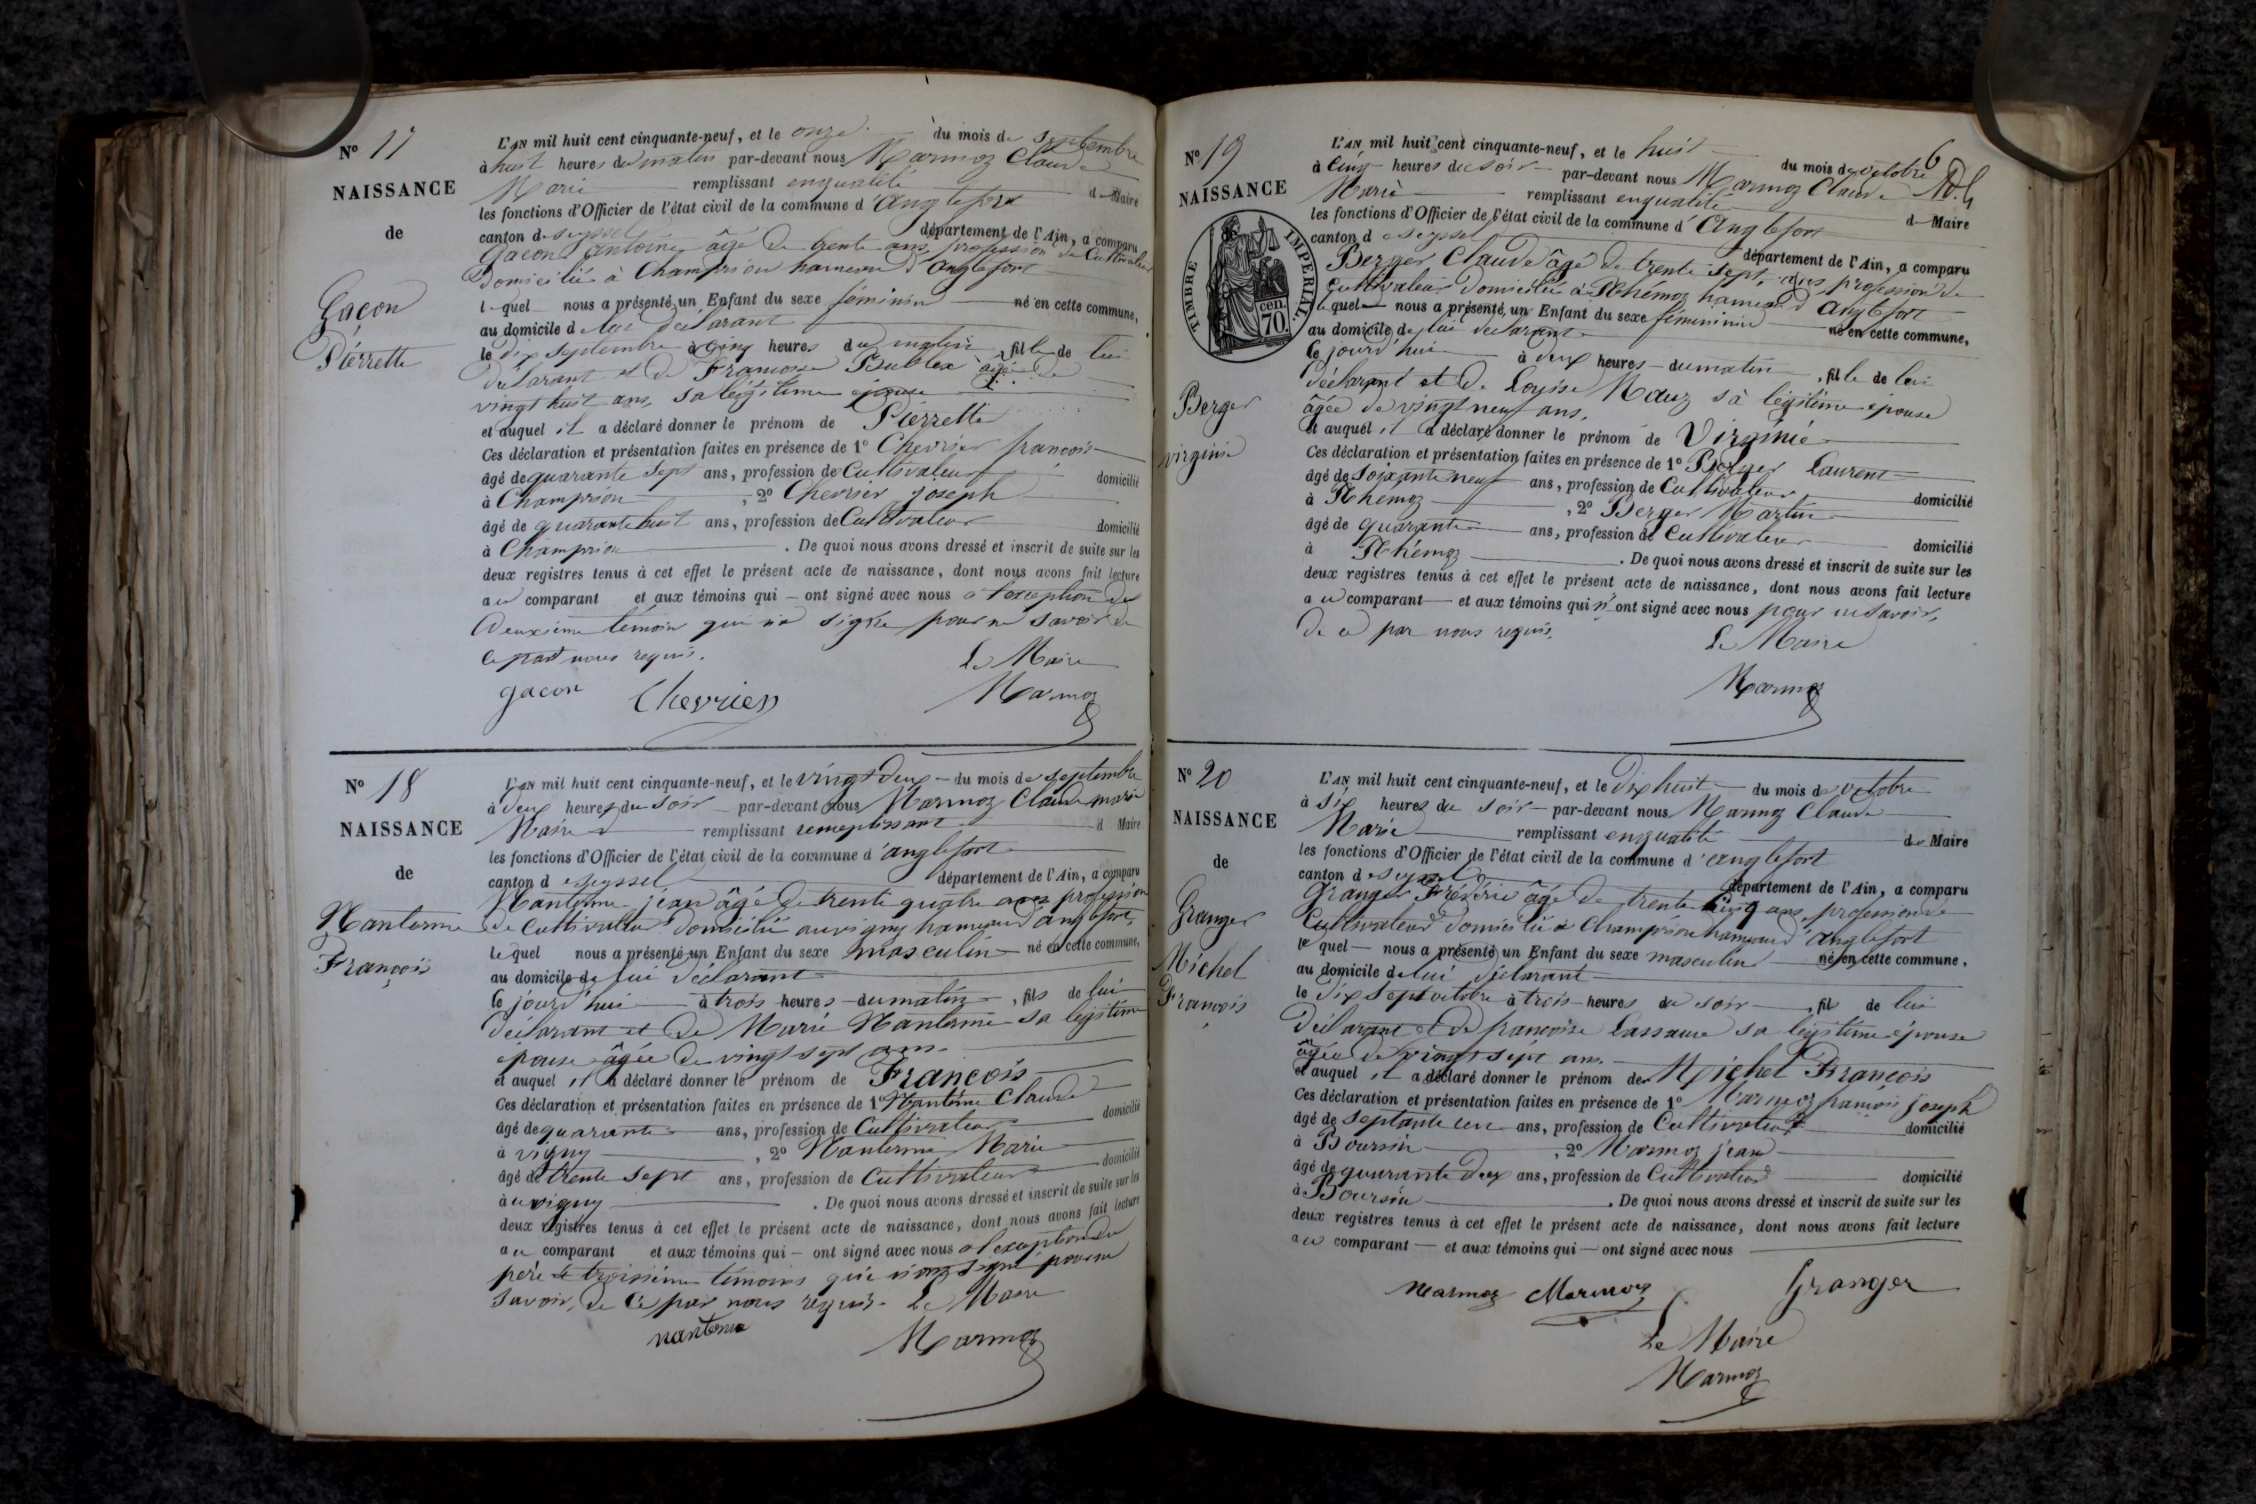 N° 17
NAISSANCE
de
Gacon
Pierrette
L'AN mil huit cent cinquante-neuf, et le onze du mois de septembre
à huit heures du matin par-devant nous Marmoz Claude
Marie remplissant enqualité d Maire
les fonctions d'Officier de l'état civil de la commune d'Anglefort
canton de seyssel département de l'Ain, a comparu
Gacon antoine âgé de trente ans, profession de Cultivateur
Domicilié à Champrion hameau d'anglefort
lequel nous a présenté un Enfant du sexe féminin né en cette commune,
au domicile de lui déclarant
le dix septembre à cinq heures du matin, fille de lui
déclarant et de Francoise Bublex âgé de
vingt huit ans, sa légitime épouse
et auquel il a déclaré donner le prénom de Pierrette
Ces déclaration et présentation faites en présence de 1° Chevrier françois
âgé de quarante sept ans, profession de Cultivateur domicilié
à Champrion, 2° Chevrier joseph
âgé de quarante huit ans, profession de Cultivateur domicilié
à Champrion. De quoi nous avons dressé et inscrit de suite sur les
deux registres tenus à cet effet le présent acte de naissance, dont nous avons fait lecture
au comparant et aux témoins qui – ont signé avec nous a l'exception du
deuxième témoin qui n'a signé pour ne savoir de
ce part nous requis. Le Maire
gacon Chevrier Marmoz
N° 18
NAISSANCE
de
Nanterme
François
L'AN mil huit cent cinquante-neuf, et le vingt deux du mois de septembre
à deux heures du soir par-devant nous Marmoz Claude marie
Maire remplissant d Maire
les fonctions d'Officier de l'état civil de la commune d'anglefort
canton de seyssel département de l'Ain, a comparu
Nanterme jean âgé de trente quatre ans profession
de Cultivateur domicilié auvigny hameau d'anglefort,
lequel nous a présenté un Enfant du sexe masculin né en cette commune,
au domicile de lui déclarant
le jourd'hui à trois heures du matin, fils de lui
déclarant et de Marie Nanterme sa légitime
épouse âgée de vingt sept ans
et auquel il a déclaré donner le prénom de François
Ces déclaration et présentation faites en présence de 1° Nanterme Claude
âgé de quarante ans, profession de Cultivateur domicilié
à vigny, 2° Nanterme Marie
âgé de trente sept ans, profession de Cultivateur domicilié
à auvigny. De quoi nous avons dressé et inscrit de suite sur les
deux registres tenus à cet effet le présent acte de naissance, dont nous avons fait lecture
au comparant et aux témoins qui – ont signé avec nous a l'exception du
père troisième témoins qui n'ont signé pour ne
savoir, de ce par nous requis. Le Maire
nanterme Marmoz
6
N° 19
NAISSANCE
TIMBRE IMPERIAL
70 cen.
Berger
virginie
L'AN mil huit cent cinquante-neuf, et le huit du mois de octobre
à Cinq heures du soir par-devant nous Marmoz Claude
Marie remplissant enqualité d Maire
les fonctions d'Officier de l'état civil de la commune d'Anglefort
canton de seyssel département de l'Ain, a comparu
Berger Claude âgé de trente sept ans profession de
Cultivateur domicilié à Rhémoz hameau d'anglefort
lequel nous a présenté un Enfant du sexe fémininin né en cette commune,
au domicile de lui déclarant
le jourd'hui à deux heures du matin, fille de lui
déclarant et de Louise Mauz sa légitime épouse
âgée de vingt neuf ans.
et auquel il a déclaré donner le prénom de Virginie
Ces déclaration et présentation faites en présence de 1° Berger Laurent
âgé de soixante neuf ans, profession de Cultivateur domicilié
à Rhemoz, 2° Berger Martin
âgé de quarante ans, profession de Cultivateur domicilié
à Rhémoz. De quoi nous avons dressé et inscrit de suite sur les
deux registres tenus à cet effet le présent acte de naissance, dont nous avons fait lecture
au comparant et aux témoins qui n'ont signé avec nous pour ne savoir,
de ce par nous requis.
Le Maire
Marmoz
N° 20
NAISSANCE
de
Granger
Michel
François
L'AN mil huit cent cinquante-neuf, et le dix huit du mois de octobre
à six heures du soir par-devant nous Marmoz Claude
Marie remplissant enqualité de Maire
les fonctions d'Officier de l'état civil de la commune d'anglefort
canton de seyssel département de l'Ain, a comparu
Granger Fréderic âgé de trente cinq ans, profession de
Cultivateur domicilié à Champrion hameau d'anglefort
lequel nous a présenté un Enfant du sexe masculin né en cette commune,
au domicile de lui déclarant
le dix sept octobre à trois heures du soir, fils de lui
déclarant et de françoise Lassauve sa légitime épouse
âgée de vingt sept ans
et auquel il a déclaré donner le prénom de Michel François
Ces déclaration et présentation faites en présence de 1° Marmoz françois joseph
âgé de septante un ans, profession de Cultivateur domicilié
à Boursin, 2° Marmoz jean
âgé de quarante deux ans, profession de Cultivateur domicilié
à Boursin. De quoi nous avons dressé et inscrit de suite sur les
deux registres tenus à cet effet le présent acte de naissance, dont nous avons fait lecture
au comparant et aux témoins qui ont signé avec nous
Marmoz Marmoz Granger
Le Maire
Marmoz